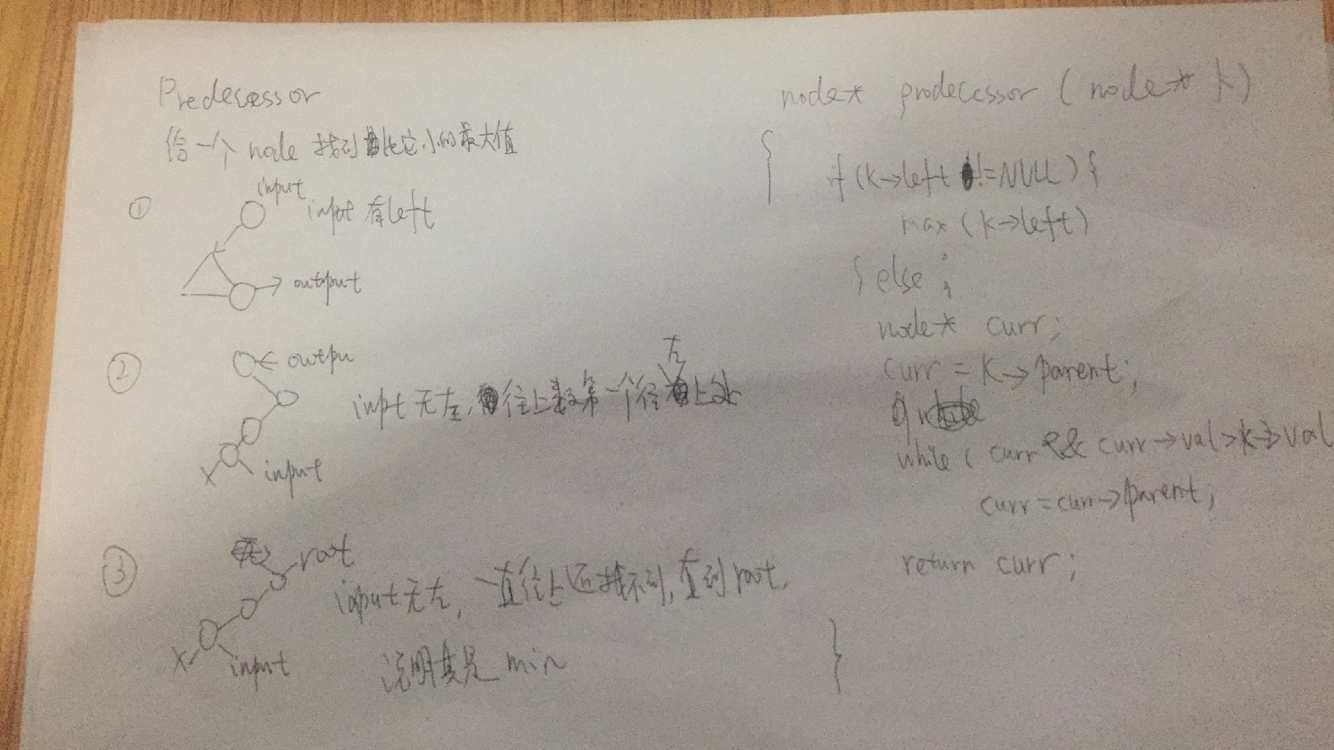 Predecessor
给一个 node 找到比它小的最大值
① input
input 有left
output
② outpu
左
inpt 无左, 往上数第一个往上处
X input
③ root
input 无左, 一直往上还找不到, 直到 root.
X input
说明其是 min
node* prodecessor ( node* k )
{
if (k→left != NULL) {
max (k→left)
} else {
node* curr;
curr = k→parent;
while ( curr && curr→val > k→val
curr = curr→parent;
return curr;
}